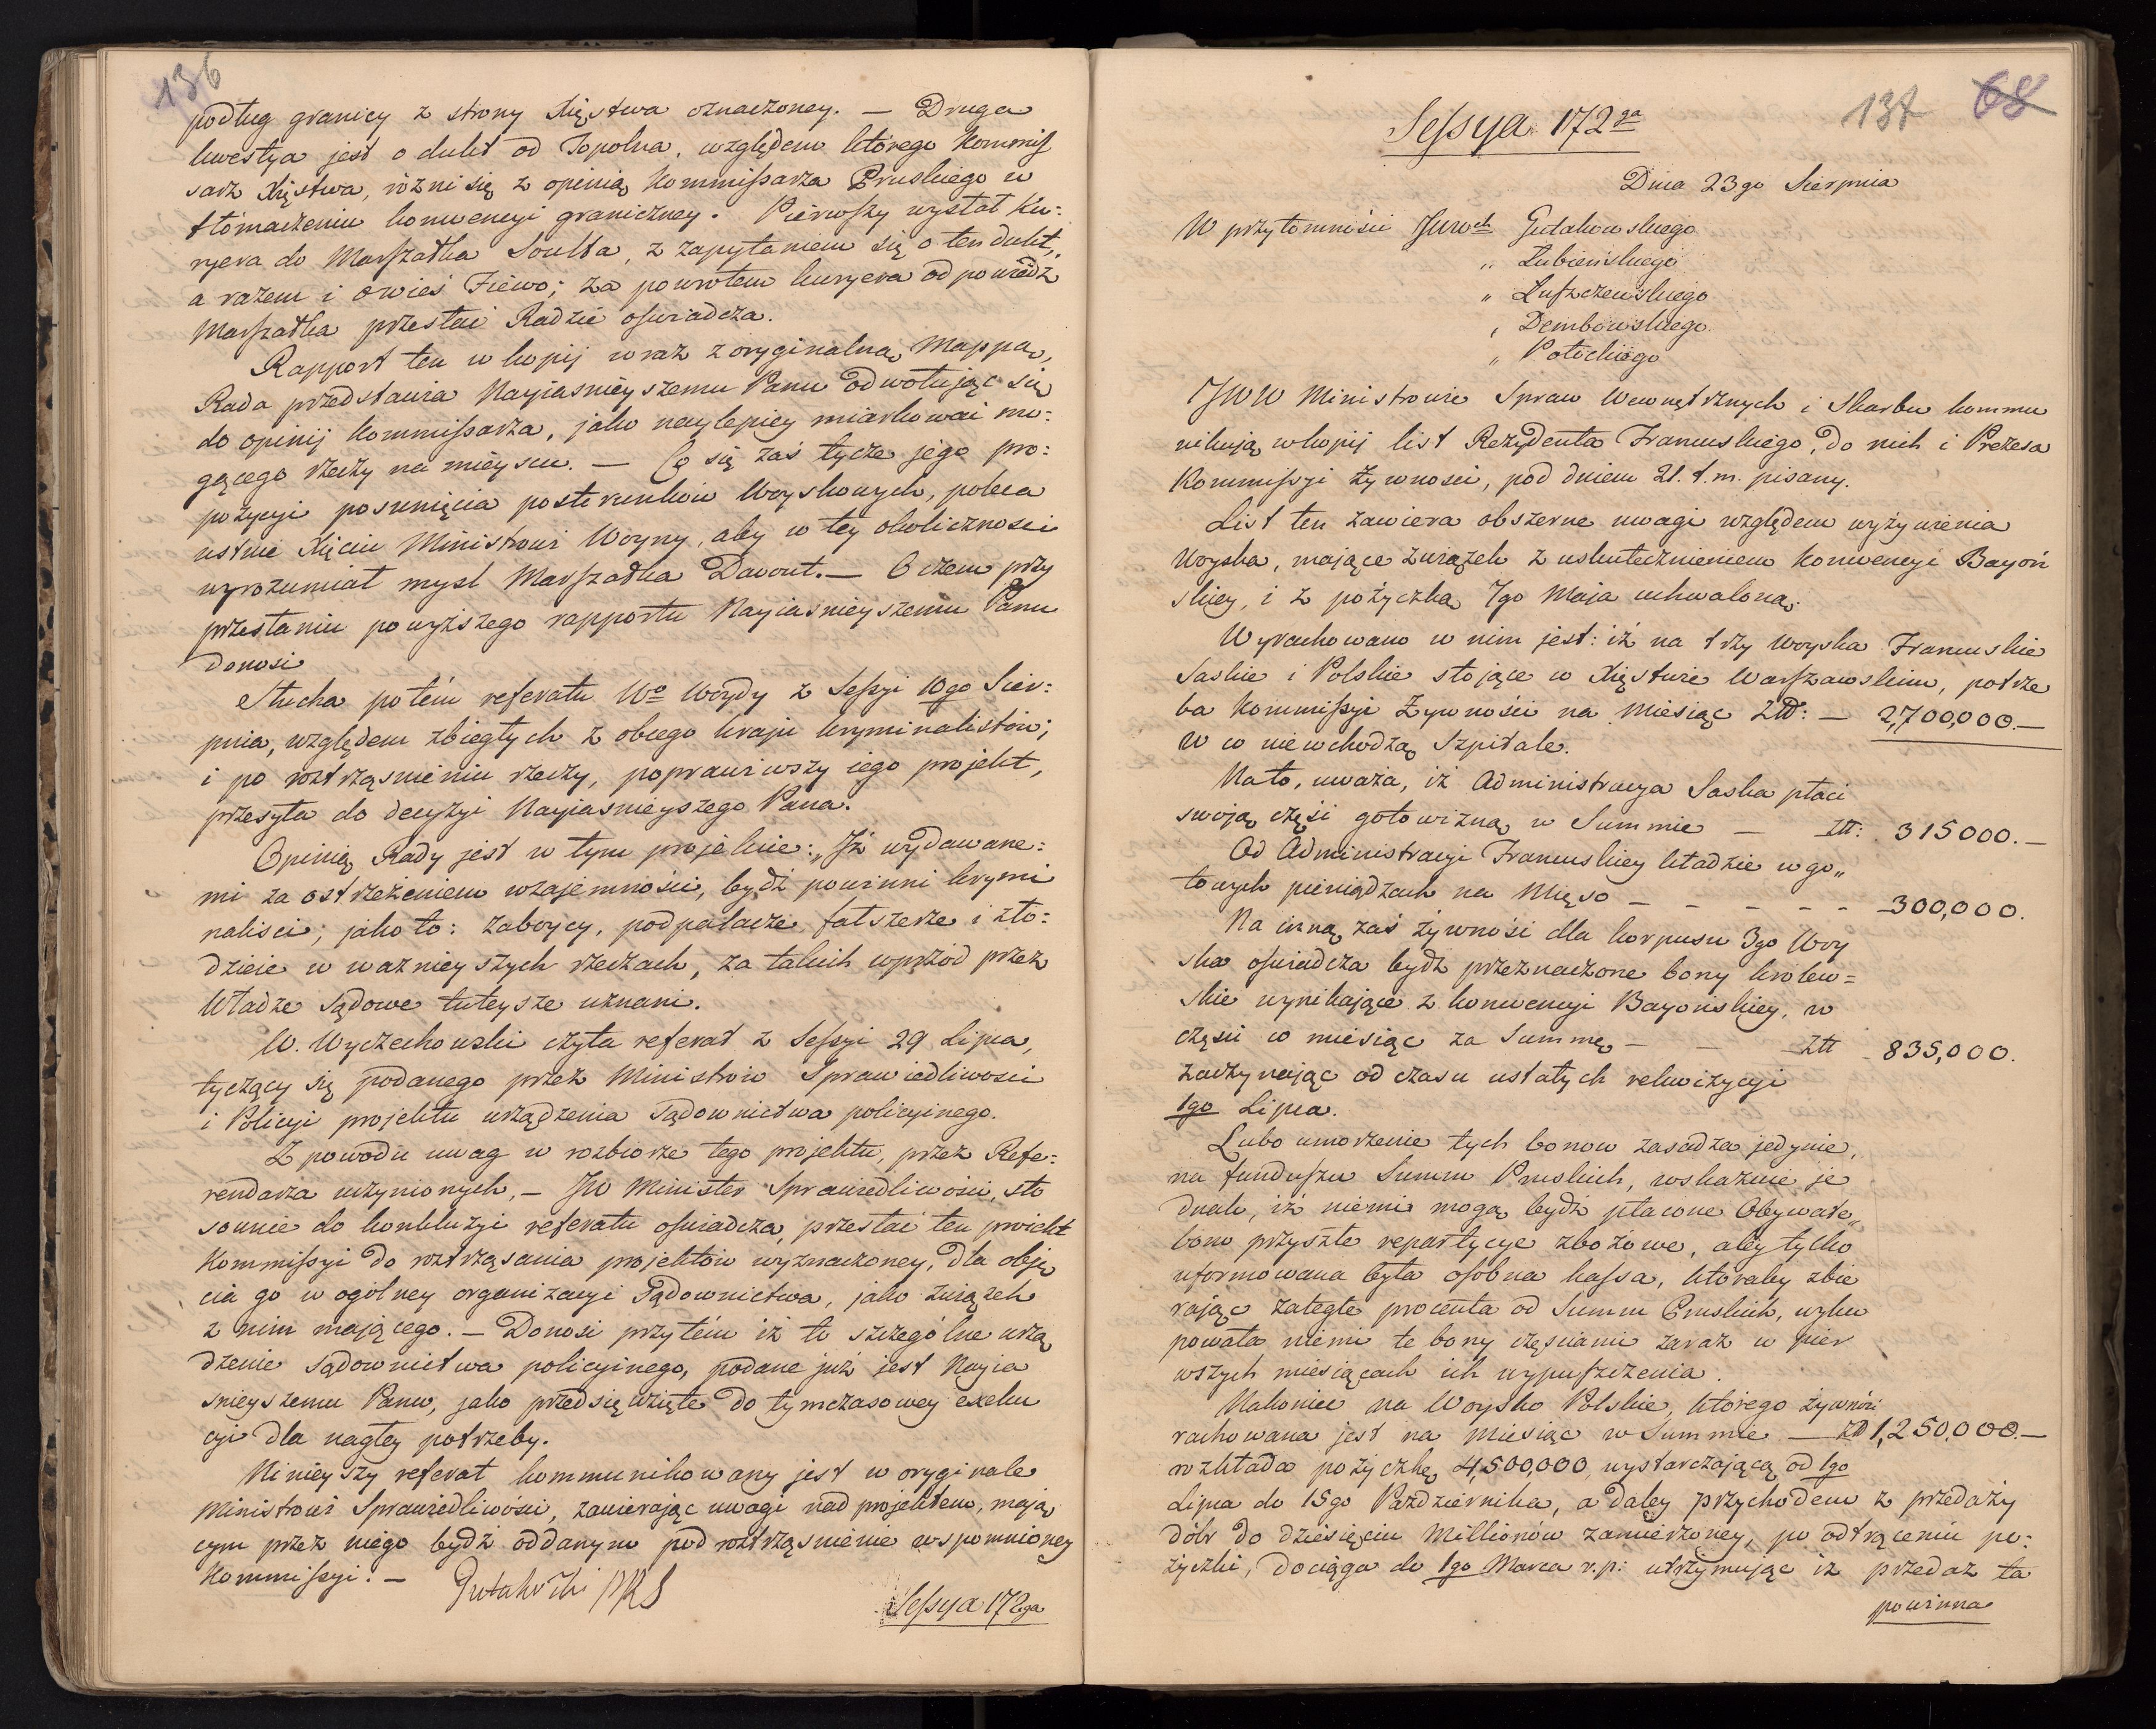 136
podług granicy z strony Xięstwa oznaczoney. — Druga
kwestya jest o dukt od Topolna, względem którego Kommiſ
sarz Xięstwa, rózni się z opinią Kommiſsarza Pruskiego w
tłómaczeniu konwencyi graniczney. Piérwſzy wysłał Ku:
ryera do Marſzałka Soulta, z zapytaniem się o ten dukt,
a razem i o wieś Fiewo; za powrotem kuryera odpowiedź
Marſzałka przesłać Radzie oſwiadcza.
Rapport ten w kopij wraz z oryginalną Mappą,
Rada przedstawia Nayiasnieyszemu Panu odwołując się
do opinij Kommiſsarza, jako naylepiey miarkować mo:
gącego rzeczy na mieyscu. — Co się zaś tycze jego pro:
pozycyi posunięcia posterunków Woyskowych, poleca
ustnie Xięciu Ministrowi Woyny, aby w tey okoliczności
wyrozumiał mysl Marſzałka Davout. — O czem przy
przesłaniu powyższego rapportu Nayiasnieyszemu Panu
donosi
Słucha potém referatu Wo Woydy z Seſsyi 10go Sier:
pnia, względem zbiegłych z obcego kraju kryminalistów;
i po roztrząsnieniu rzeczy, poprawiwszy iego projekt,
przesyła do decyzyi Nayiasnieyszego Pana.
Opinią Rady jest w tym projekcie: „Iż wydawane:
mi za ostrzeżeniem wzajemności, bydź powinni krymi
nalisci; jako to: Zaboycy, podpalacze, fałszerze i zło:
dzieie w waznieyszych rzeczach, za takich wprzód przez
Władze sądowe tuteysze uznani.
W. Wyczechowski czyta referat z Seſsyi 29 Lipca,
tyczący się podanego przez Ministrów Sprawiedliwości
i Policyi projektu urządzenia Sądownictwa policyinego.
Z powodu uwag w rozbiorze tego projektu, przez Refe:
rendarza uczynionych, — JW Minister Sprawiedliwości, sto
sownie do konkluzyi referatu oſwiadcza, przesłać ten proiekt
Kommiſsyi do roztrząsania projektów wyznaczoney, dla obję
cia go w ogólney organizacyi Sądownictwa, jako związek
z nim mającego. — Donosi przytém iż to szczególne urzą
dzenie sądownictwa policyinego, podane już jest Nayia
snieyszemu Panu, jako przedsięwzięte do tymczasowey exeku
cyi dla nagłey potrzeby.
Ninieyszy referat kommunikowany jest w oryginale
Ministrowi Sprawiedliwości, zawierając uwagi nad projektem, mają
cym przez niego bydź oddanym pod roztrząsnienie wspomnioney
Kommiſsyi. —
Gutakowski PRS
Seſsya 172ga
137 68
Seſsya 172ga
Dnia 23go Sierpnia
W przytomności JWWch Gutakowskiego
„ Łubieńskiego
„ Łuſzczewskiego
„ Dembowskiego
„ Potockiego
JWW Ministrowie Spraw Wewnętrznych i Skarbu kommu
nikują w kopij list Rezydenta Francuskiego, do nich i Prezesa
Kommiſsyi Żywnosci, pod dniem 21. t. m. pisany.
List ten zawiera obszerne uwagi względem wyżywienia
Woyska, mające związek z uskutecznieniem Konwencyi Bayoń
skiey, i z pożyczką 7go Maja uchwaloną.
Wyrachowano w nim jest: iż na trzy Woyska Francuskie
Saskie i Polskie stojące w Xięstwie Warſzawskim, potrze
ba Kommiſsyi Żywności na Miesiąc Złł: — 2,700,000.—
W co niewchodzą Szpitale.
Na to, uważa, iż Administracya Saska płaci
swoją częsć gotowizną w Summie — złł: 315000.—
Od Administracyi Francuskiey kładzie w go„
towych pieniądzach na Mięso — — — — — 300,000.
Na inną zaś żywność dla korpusu 3go Woy
ska oſwiadcza bydź przeznaczone bony krolew=
skie wynikające z konwencyi Bayońskiey, w
części co miesiąc za Summę — — złł 835,000.
zaczynając od czasu ustałych rekwizycyi
1go Lipca.
Lubo umorzenie tych bonow zasadza jedynie,
na funduſzu Summ Pruskich, wskazuie je
dnak, iż niemi mogą bydź płacone Obywate„
lom przyszłe repartycye zbożowe, aby tylko
uformowana była oſobna kaſsa, któraby zbie
rając zaległe procenta od Summ Pruskich, wyku
powała niemi te bony częsciami zaraz w pier
wszych miesiącach ich wypuſzczenia.
Nakoniec na Woysko Polskie, którego żywność
rachowana jest na miesiąc w Summie — Złł 1,250,000.—
rozkłada pożyczkę 4,500,000, wystarczającą od 1go
Lipca do 15go Pazdziernika, a daley przychodem z przedaży
dóbr do dziesięciu Millionów zamierzoney, po odtrąceniu po:
życzki, dociąga do 1go Marca r. p: utrzymując iż przedaż ta
powinna